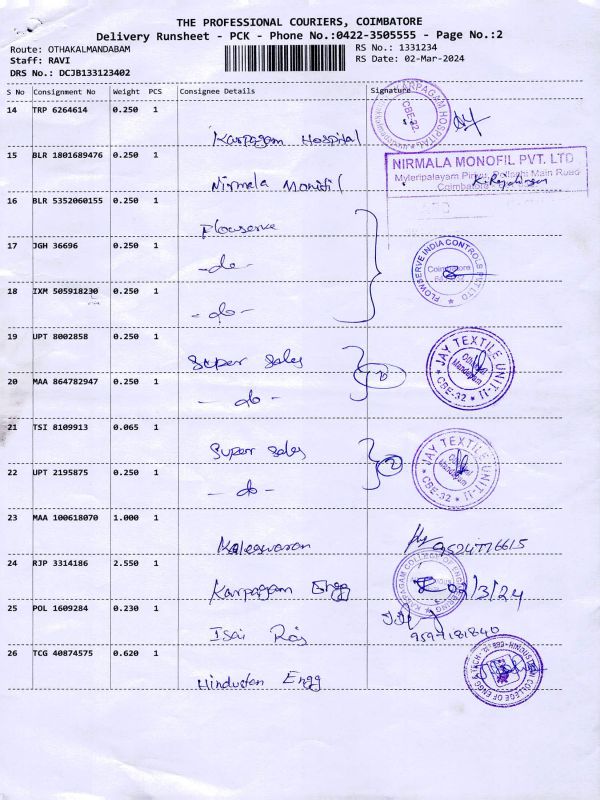 THE PROFESSIONAL COURIERS, COIMBATORE
Delivery Runsheet - PCK - Phone No.:0422-3505555 - Page No.:2
Route: OTHAKALMANDABAM
RS No.: 1331234
Staff: RAVI
RS Date: 02-Mar-2024
DRS No.: DCJB133123402
S No Consignment No Weight PCS Consignee Details Signature
14 TRP 6264614 0.250 1
Karpagam Hospital
KARPAGAM HOSPITAL CBE-32.
15 BLR 1801689476 0.250 1
Nirmala Monofil
NIRMALA MONOFIL PVT. LTD
Myleripalayam Pirivu, Pollachi Main Road
Coimbatore
16 BLR 5352060155 0.250 1
Flowserve
17 JGH 36696 0.250 1
-do-
FLOWSERVE INDIA CONTROLS PVT LTD Coimbatore
18 IXM 505918230 0.250 1
-do-
19 UPT 8002858 0.250 1
Super Sales
JAY TEXTILE UNIT-II CBE-32 Othakkal Mandapam
20 MAA 864782947 0.250 1
-do-
21 TSI 8109913 0.065 1
Super Sales
2
JAY TEXTILE UNIT-II CBE-32 Mandapam
22 UPT 2195875 0.250 1
-do-
23 MAA 100618070 1.000 1
Kaleeswaran
9524776615
24 RJP 3314186 2.550 1
Karpagam Engg
KARPAGAM COLLEGE OF ENGINEERING
02/3/24
25 POL 1609284 0.230 1
Isai Raj
9597181840
26 TCG 40874575 0.620 1
Hindustan Engg
HINDUSTAN COLLEGE OF ENGG & TECH